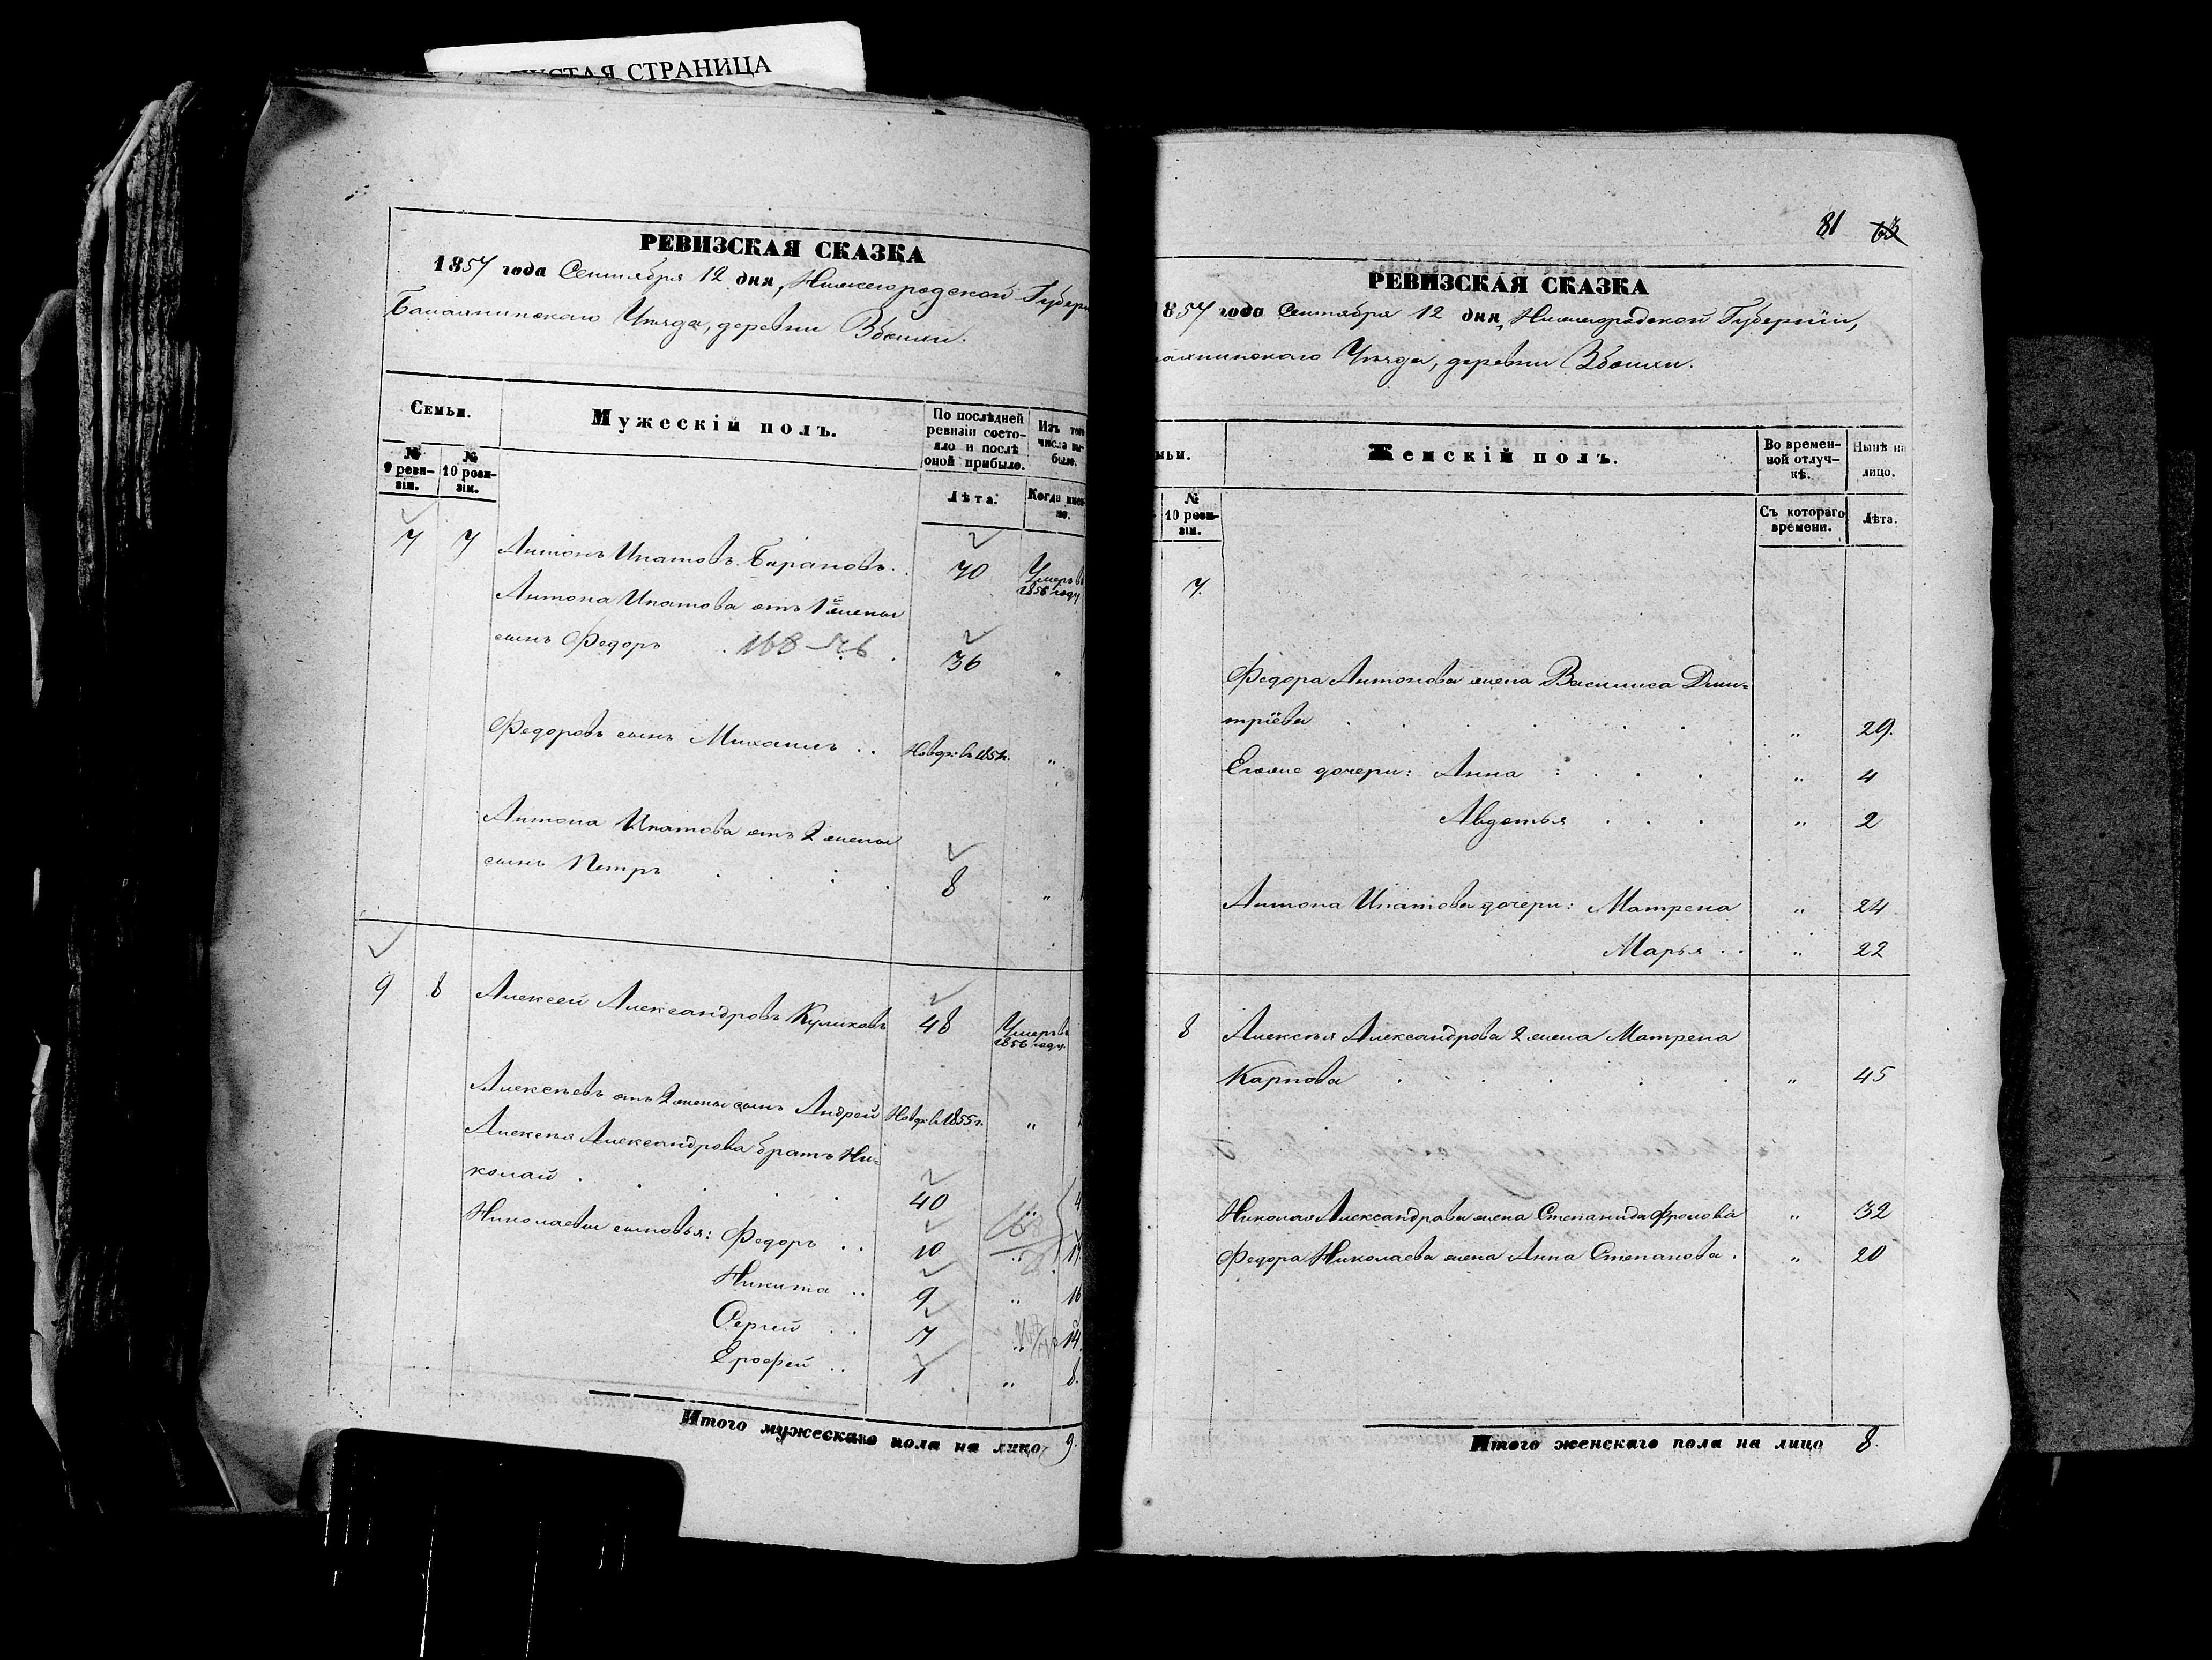 СТАЯ СТРАНИЦА
РЕВИЗСКАЯ СКАЗКА
1857 года Сентября 12 дня, Нижегородской Губер
Балахнинскаго Уѣзда, деревни
Семьи.
Мужескій полъ.
По послѣдней ревизіи состояло и послѣ оной прибыло.
Изъ того числа выбыло.
№ 9 ревизіи.
№ 10 ревизіи.
Лѣта.
Когда имен-но.
7 7 Антонъ Ипатовъ Барановъ. 70 Умеръ въ 1856 году
Антона Ипатова отъ 1й жены
сынъ Федоръ . 168 . 36 "
Федоровъ сынъ Михаилъ . . Новор: въ 1857г. "
Антона Ипатова отъ 2 жены
сынъ Петръ . . . 8 "
9 8 Алексей Александровъ Куликовъ 48 Умеръ въ 1856 году.
Алексѣевъ отъ 2 жены сынъ Андрей Новор. в 1855г. "
Алексѣя Александрова братъ Ни=
колай . . . . 40
Николаевы сыновья: Федоръ . . 10 "
Никита . . 9 " 16
Сергей . . 7 " 14.
Ерофей . . 1 " 8.
Итого мужескаго пола на лицо 9.
81 63
РЕВИЗСКАЯ СКАЗКА
1857 года Сентября 12 дня, Нижегородской Губерніи,
ахнинскаго Уѣзда, деревни
мьи.
Женскій полъ.
Во времен-ной отлуч-кѣ.
Нынѣ на лицо.
№ 10 ревизіи.
Съ котораго времени.
Лѣта.
7.
Федора Антонова жена Василиса Дми=
тріева . . . . . " 29.
Егоже дочери: Анна : . . . " 4
Авдотья . . . " 2
Антона Ипатова дочери: Матрена " 24
Марья . . " 22
8 Алексѣя Александрова 2 жена Матрена
Карпова . . . . . " 45
Николая Александрова жена Степанида Фролова " 32
Федора Николаева жена Анна Степанова . " 20
Итого женскаго пола на лицо 8.